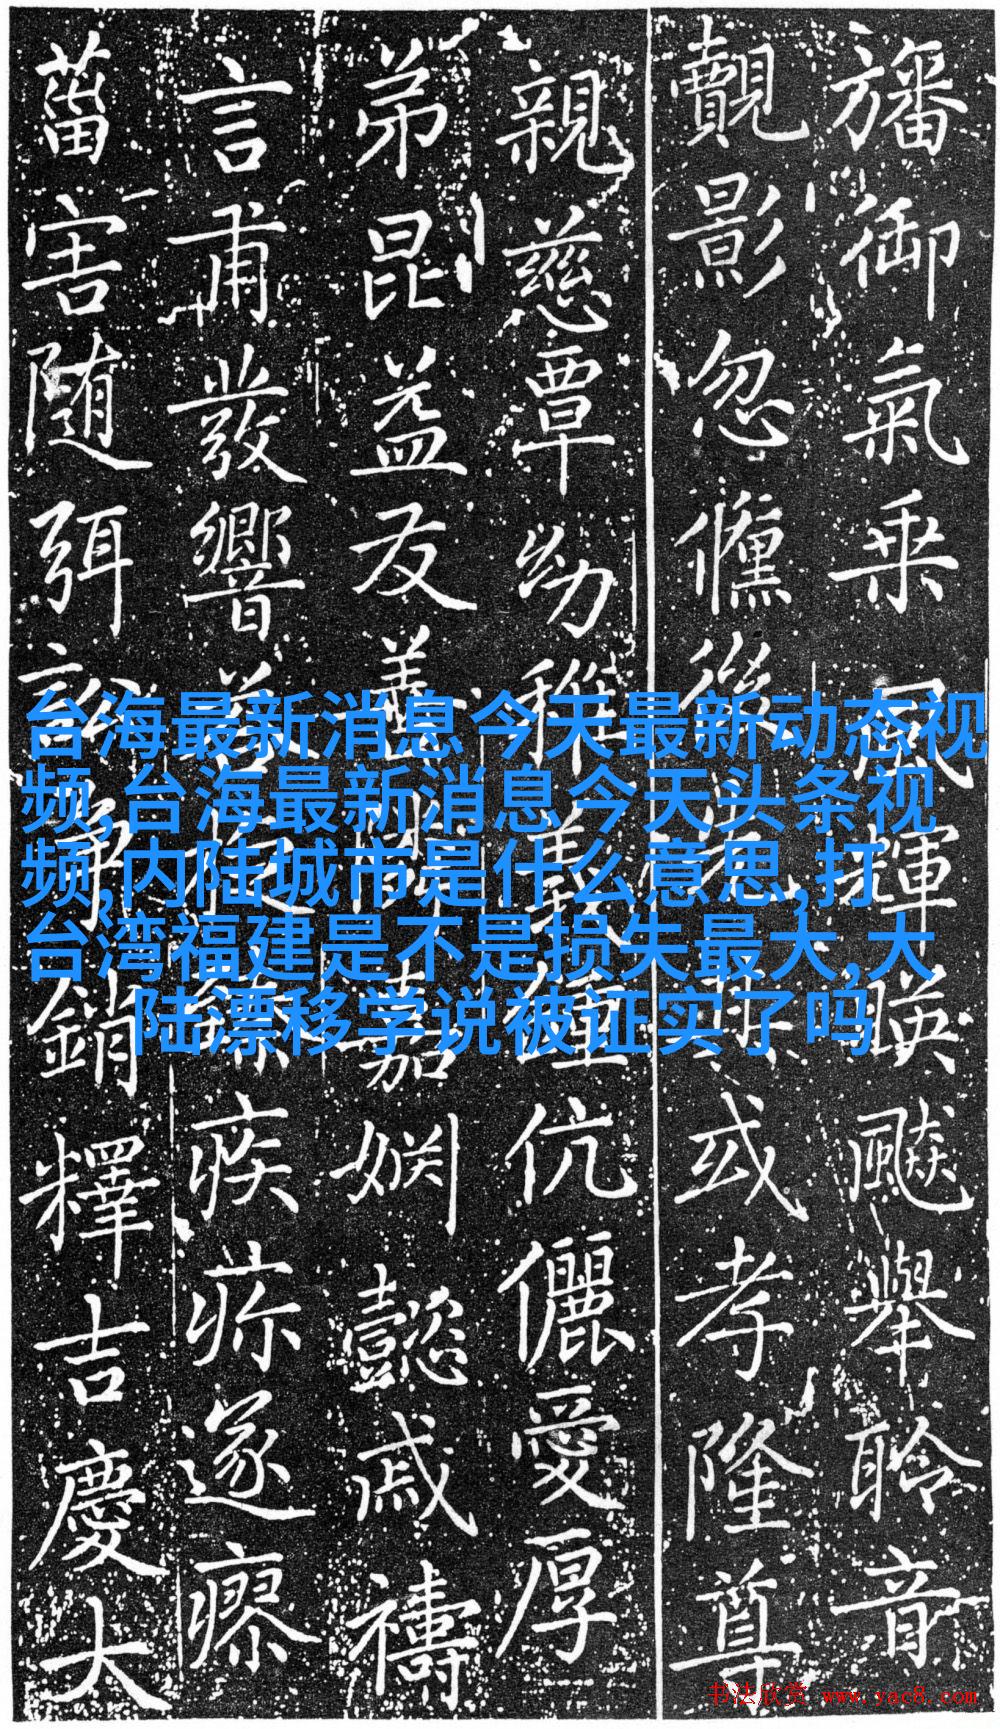 旛御氣乗風暎飈舉聆音
覿影忽後或孝隆尊
親慈覃幼稚伉儷愛厚
弟昆益友嘉姻懿戚禱
言甫發響疾遂瘳
菑害随弭訟爭銷釋吉慶大
台海最新消息今天最新动态视
频,台海最新消息今天头条视
频,内陆城市是什么意思,打
台湾福建是不是损失最大,大
陆漂移学说被证实了吗
书法欣赏 www.yac8.com